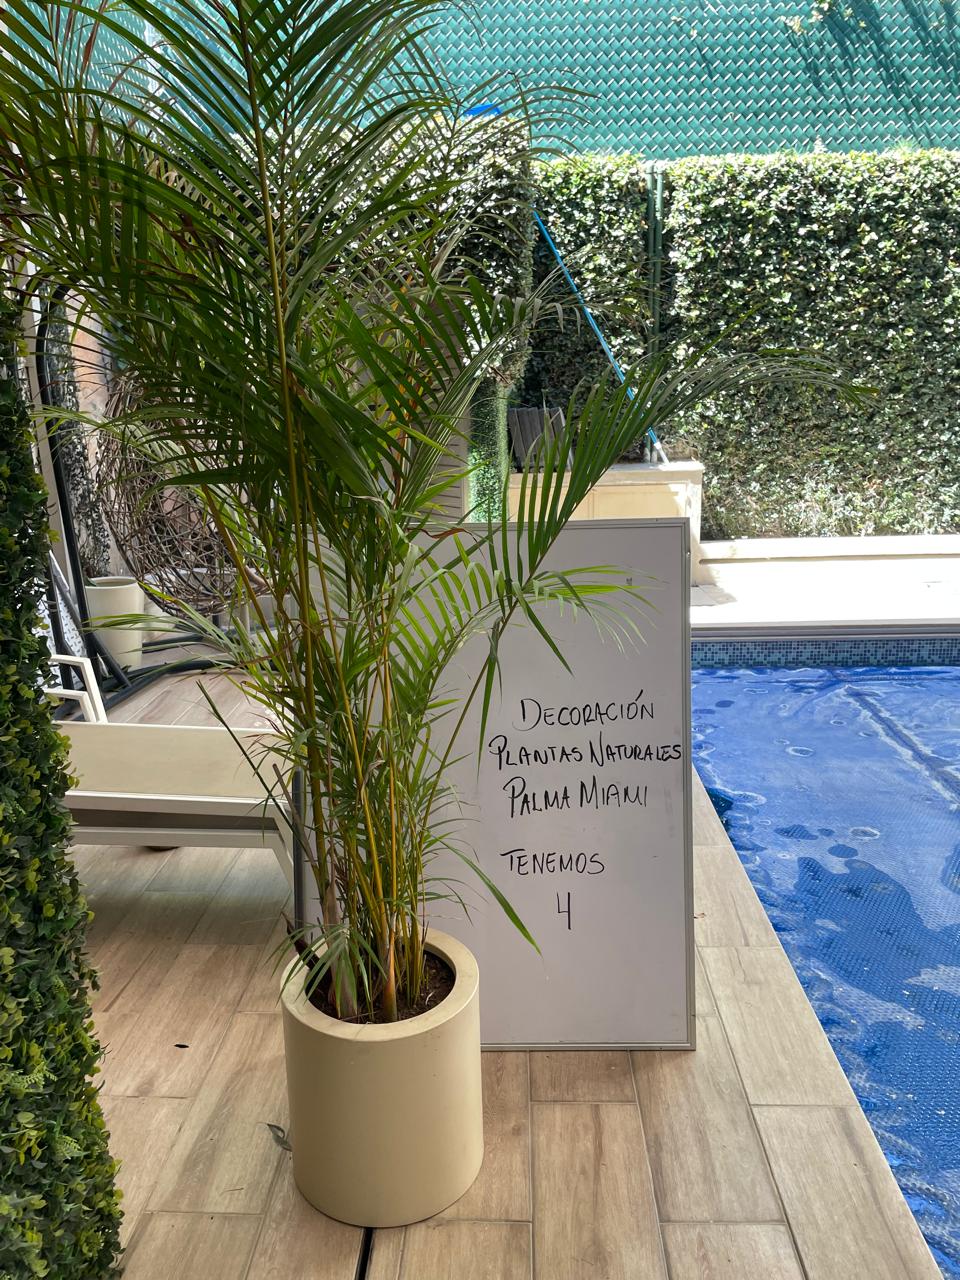 DECORACIÓN
PLANTAS NATURALES
PALMA MIAMI
TENEMOS
4